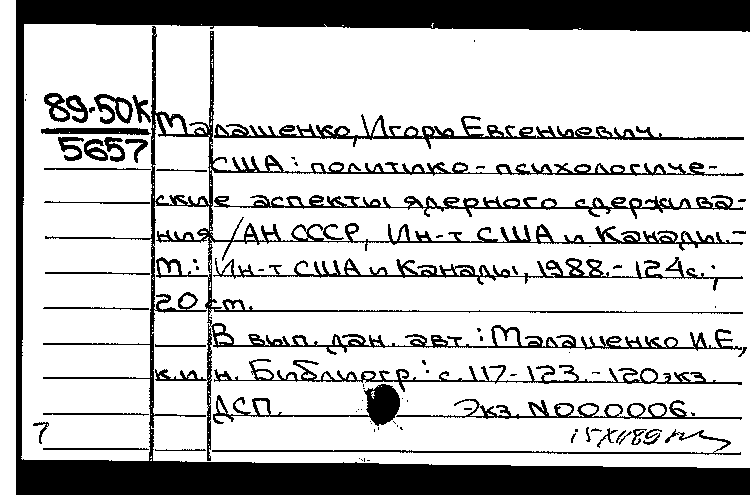 89-50К
5657
Малашенко, Игорь Евгеньевич.
США: политико-психологиче-
ские аспекты ядерного сдержива-
ния / АН СССР, Ин-т США и Канады.-
М.: Ин-т США и Канады, 1988.- 124с.;
20 см.
В вып. дан. авт.: Малашенко И.Е.,
к.и.н. Библиогр.: с.117-123.-120экз.
ДСП. Экз. N000006.
7 15XII89